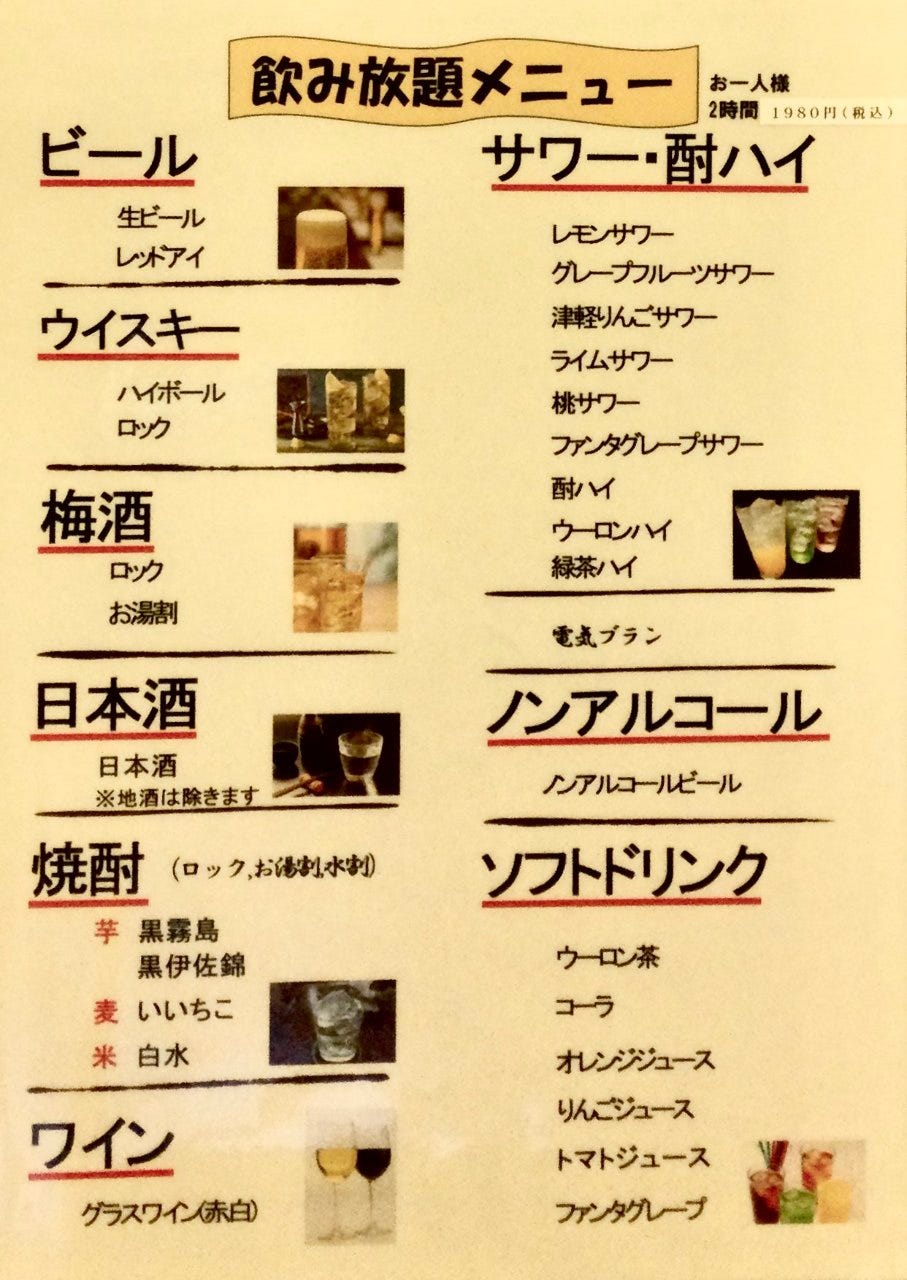 飲み放題メニュー
お一人様
2時間 1980円(税込)
ビール
生ビール
レッドアイ
ウイスキー
ハイボール
ロック
梅酒
ロック
お湯割
日本酒
日本酒
※地酒は除きます
焼酎 (ロック,お湯割,水割)
芋 黒霧島
黒伊佐錦
麦 いいちこ
米 白水
ワイン
グラスワイン(赤白)
サワー・酎ハイ
レモンサワー
グレープフルーツサワー
津軽りんごサワー
ライムサワー
桃サワー
ファンタグレープサワー
酎ハイ
ウーロンハイ
緑茶ハイ
電気ブラン
ノンアルコール
ノンアルコールビール
ソフトドリンク
ウーロン茶
コーラ
オレンジジュース
りんごジュース
トマトジュース
ファンタグレープ